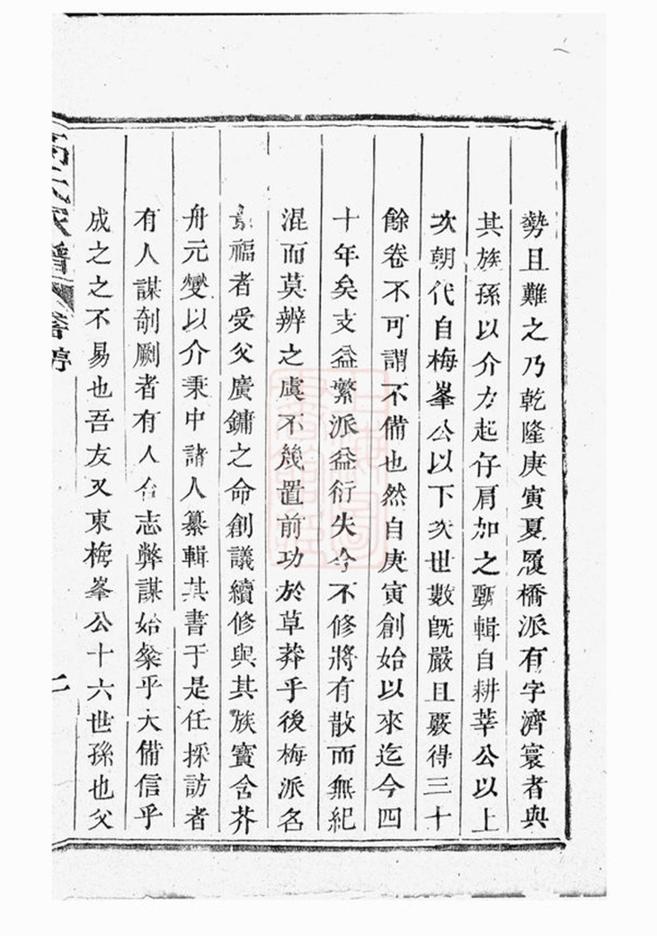 勢且難之乃乾隆庚寅夏履橋派有字濟寰者與
其族孫以介力起仔肩加之甄輯自耕莘公以上
次朝代自梅峯公以下次世數旣嚴且覈得三十
餘卷不可謂不備也然自庚寅創始以來迄今四
十年矣支益繁派益衍失今不修將有散而無紀
混而莫辨之虞不幾置前功於草莽乎後梅派名
福者受父廣鏞之命創議續修與其族寳舍芥
舟元燮以介秉中諸人纂輯其書于是任採訪者
有人謀剞劂者有人合志弊謀始粲乎大備信乎
成之之不易也吾友又東梅峯公十六世孫也父
氏家譜
二